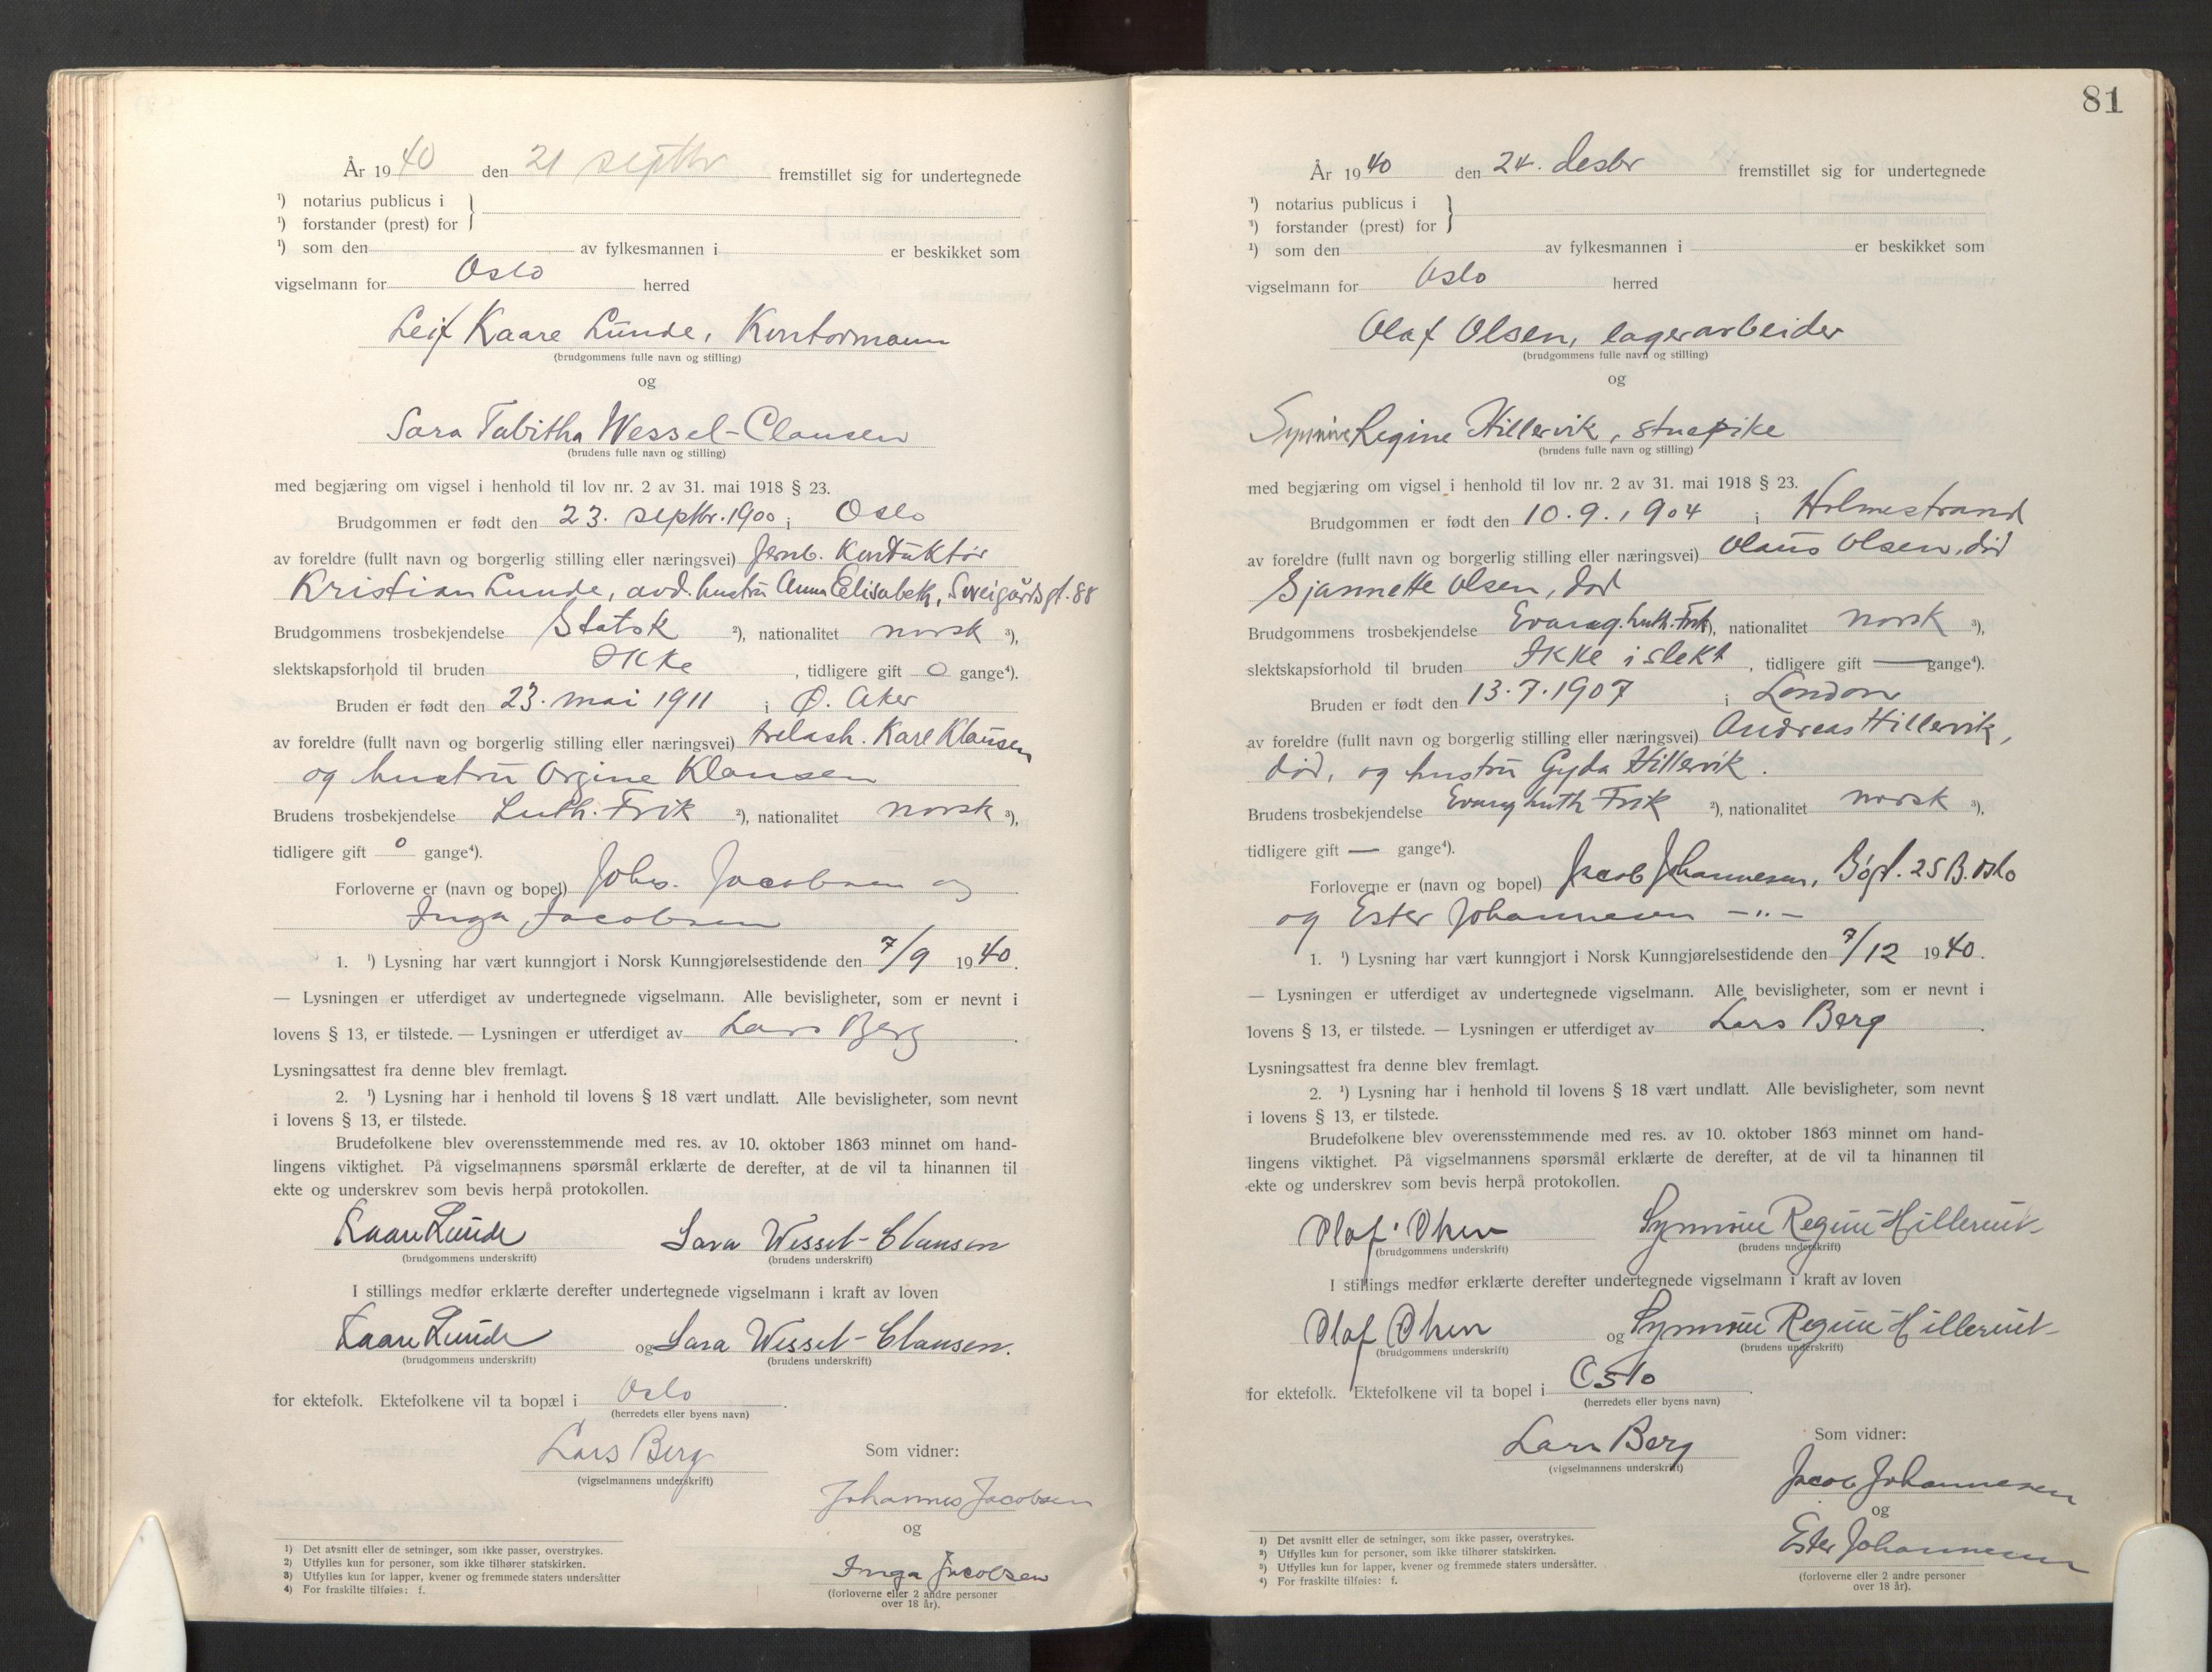 År 1940 den 21 septbr fremstillet sig for undertegnede
¹) notarius publicus i
¹) forstander (prest) for
¹) som den av fylkesmannen i er beskikket som
vigselmann for Oslo herred
Leif Kaare Lunde, Kontormann
(brudgommens fulle navn og stilling)
og
Sara Tabitha Wessel-Clausen
(brudens fulle navn og stilling)
med begjæring om vigsel i henhold til lov nr. 2 av 31. mai 1918 § 23.
Brudgommen er født den 23. septbr. 1900 i Oslo
av foreldre (fullt navn og borgerlig stilling eller næringsvei) Jernb. Konduktør
Kristian Lunde, avd. hustru Anna Elisabeth, Sveigårdsgt. 88
Brudgommens trosbekjendelse Statsk ²), nationalitet norsk ³),
slektskapsforhold til bruden Ikke , tidligere gift 0 gange⁴).
Bruden er født den 23. mai 1911 i Ø. Aker
av foreldre (fullt navn og borgerlig stilling eller næringsvei) trelasth. Karl Klausen
og hustru Orgine Klausen
Brudens trosbekjendelse Luth. Frik ²), nationalitet norsk ³),
tidligere gift 0 gange⁴).
Forloverne er (navn og bopel) Johs. Jacobsen og
Inga Jacobsen
1. ¹) Lysning har vært kunngjort i Norsk Kunngjørelsestidende den 7/9 1940.
— Lysningen er utferdiget av undertegnede vigselmann. Alle bevisligheter, som er nevnt i
lovens § 13, er tilstede. — Lysningen er utferdiget av Lars Berg.
Lysningsattest fra denne blev fremlagt.
2. ¹) Lysning har i henhold til lovens § 18 vært undlatt. Alle bevisligheter, som nevnt
i lovens § 13, er tilstede.
Brudefolkene blev overensstemmende med res. av 10. oktober 1863 minnet om hand-
lingens viktighet. På vigselmannens spørsmål erklærte de derefter, at de vil ta hinannen til
ekte og underskrev som bevis herpå protokollen.
Kaare Lunde Sara Wessel-Clausen
(brudgommens underskrift) (brudens underskrift)
I stillings medfør erklærte derefter undertegnede vigselmann i kraft av loven
Kaare Lunde og Sara Wessel-Clausen.
(brudgommens underskrift) (brudens underskrift)
for ektefolk. Ektefolkene vil ta bopæl i Oslo.
(herredets eller byens navn)
Lars Berg Som vidner:
(vigselmannens underskrift)
Johannes Jacobsen
og
Inga Jacobsen
(forloverne eller 2 andre personer
over 18 år).
1) Det avsnitt eller de setninger, som ikke passer, overstrykes.
2) Utfylles kun for personer, som ikke tilhører statskirken.
3) Utfylles kun for lapper, kvener og fremmede staters undersåtter
4) For fraskilte tilføies: f.
81
År 1940 den 24. desbr fremstillet sig for undertegnede
¹) notarius publicus i
¹) forstander (prest) for
¹) som den av fylkesmannen i er beskikket som
vigselmann for Oslo herred
Olaf Olsen, lagerarbeider
(brudgommens fulle navn og stilling)
og
Synnøve Regine Hillervik, stuepike
(brudens fulle navn og stilling)
med begjæring om vigsel i henhold til lov nr. 2 av 31. mai 1918 § 23.
Brudgommen er født den 10.9.1904 i Holmestrand
av foreldre (fullt navn og borgerlig stilling eller næringsvei) Olaus Olsen, död
Sjannette Olsen, död
Brudgommens trosbekjendelse Evang. luth. Frk ²), nationalitet norsk ³),
slektskapsforhold til bruden Ikke i slekt , tidligere gift — gange⁴).
Bruden er født den 13.7.1907 i London
av foreldre (fullt navn og borgerlig stilling eller næringsvei) Andreas Hillervik,
död, og hustru Gyda Hillervik.
Brudens trosbekjendelse Evang luth Frik ²), nationalitet norsk ³),
tidligere gift — gange⁴).
Forloverne er (navn og bopel) Jacob Johannesen, 25 B. Oslo
og Ester Johannesen —"—
1. ¹) Lysning har vært kunngjort i Norsk Kunngjørelsestidende den 7/12 1940.
— Lysningen er utferdiget av undertegnede vigselmann. Alle bevisligheter, som er nevnt i
lovens § 13, er tilstede. — Lysningen er utferdiget av Lars Berg.
Lysningsattest fra denne blev fremlagt.
2. ¹) Lysning har i henhold til lovens § 18 vært undlatt. Alle bevisligheter, som nevnt
i lovens § 13, er tilstede.
Brudefolkene blev overensstemmende med res. av 10. oktober 1863 minnet om hand-
lingens viktighet. På vigselmannens spørsmål erklærte de derefter, at de vil ta hinannen til
ekte og underskrev som bevis herpå protokollen.
Olaf Olsen Synnøve Regine Hillervik
(brudgommens underskrift) (brudens underskrift)
I stillings medfør erklærte derefter undertegnede vigselmann i kraft av loven
Olaf Olsen og Synnøve Regine Hillervik
(brudgommens underskrift) (brudens underskrift)
for ektefolk. Ektefolkene vil ta bopel i Oslo.
(herredets eller byens navn)
Lars Berg Som vidner:
(vigselmannens underskrift)
Jacob Johannesen
og
Ester Johannesen
(forloverne eller 2 andre personer
over 18 år).
¹) Det avsnitt eller de setninger, som ikke passer, overstrykes.
²) Utfylles kun for personer, som ikke tilhører statskirken.
³) Utfylles kun for lapper, kvener og fremmede staters undersåtter.
⁴) For fraskilte tilføies: f.